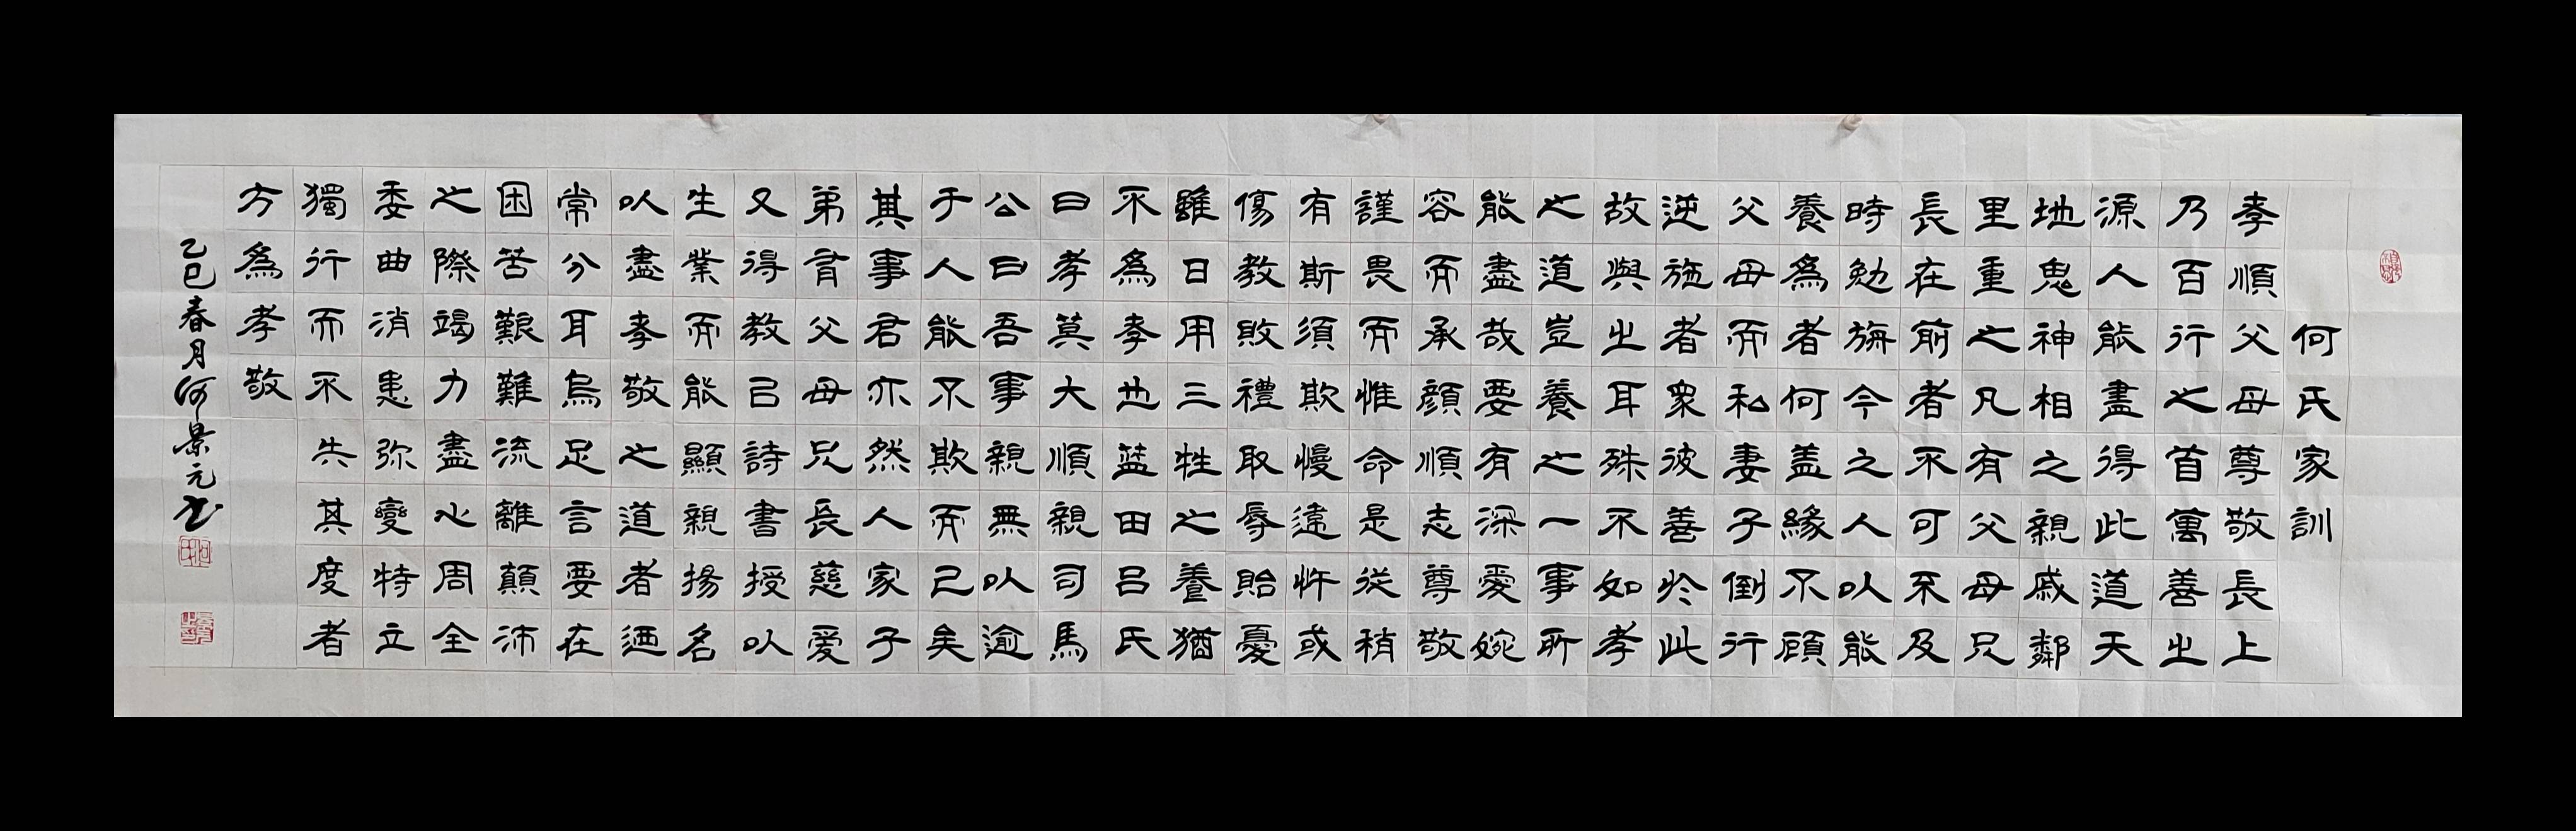 何氏家訓
孝順父母尊敬長上
乃百行之首萬善之
源人能盡得此道天
地鬼神相之親戚鄰
里重之凡有父母兄
長在前者不可不及
時勉旃今之人以能
養爲者何盖緣不顧
父母而私妻子倒行
逆施者衆彼善於此
故與之耳殊不如孝
之道豈養之一事所
能盡哉要有深愛婉
容而承顏順志尊敬
謹畏而惟命是從稍
有斯須欺慢違忤或
傷教敗禮取辱貽憂
雖日用三牲之養猶
不爲孝也藍田呂氏
曰孝莫大順親司馬
公曰吾事親無以逾
于人能不欺而已矣
其事君亦然人家子
弟有父母兄長慈愛
又得教己詩書授以
生業而能顯親揚名
以盡孝敬之道者迺
常分耳烏足言要在
困苦艱難流離顛沛
之際竭力盡心周全
委曲消患弥變特立
獨行而不失其度者
方爲孝敬
乙巳春月何景元书